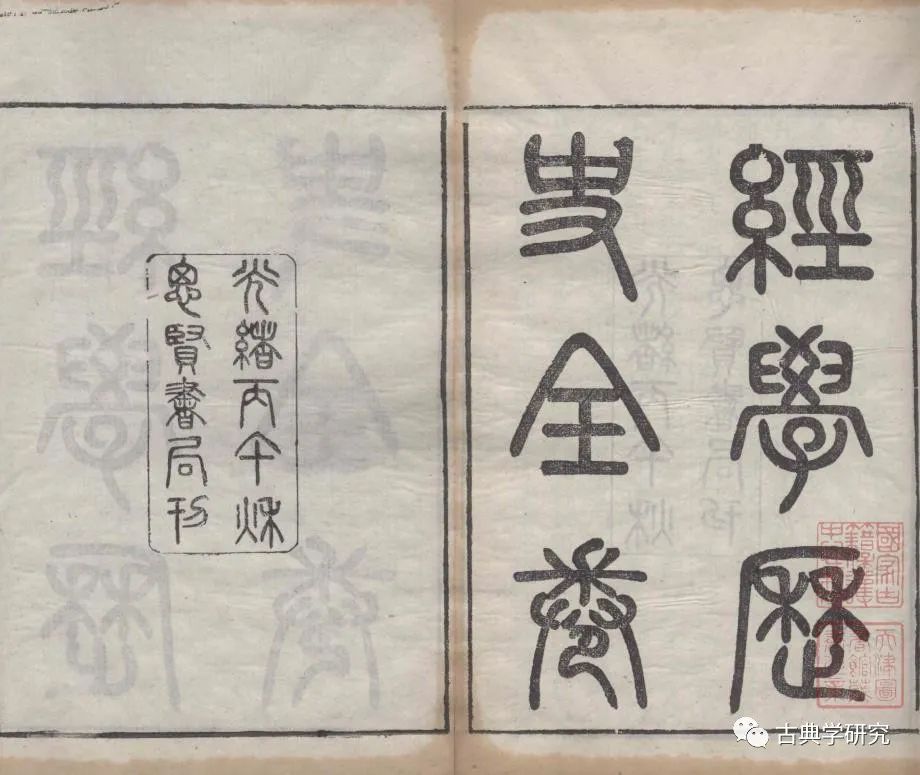 經學歷
史全卷
光緒丙午秌
思賢書局刊
國家古
籍保護
天津圖
書館藏
古典学研究